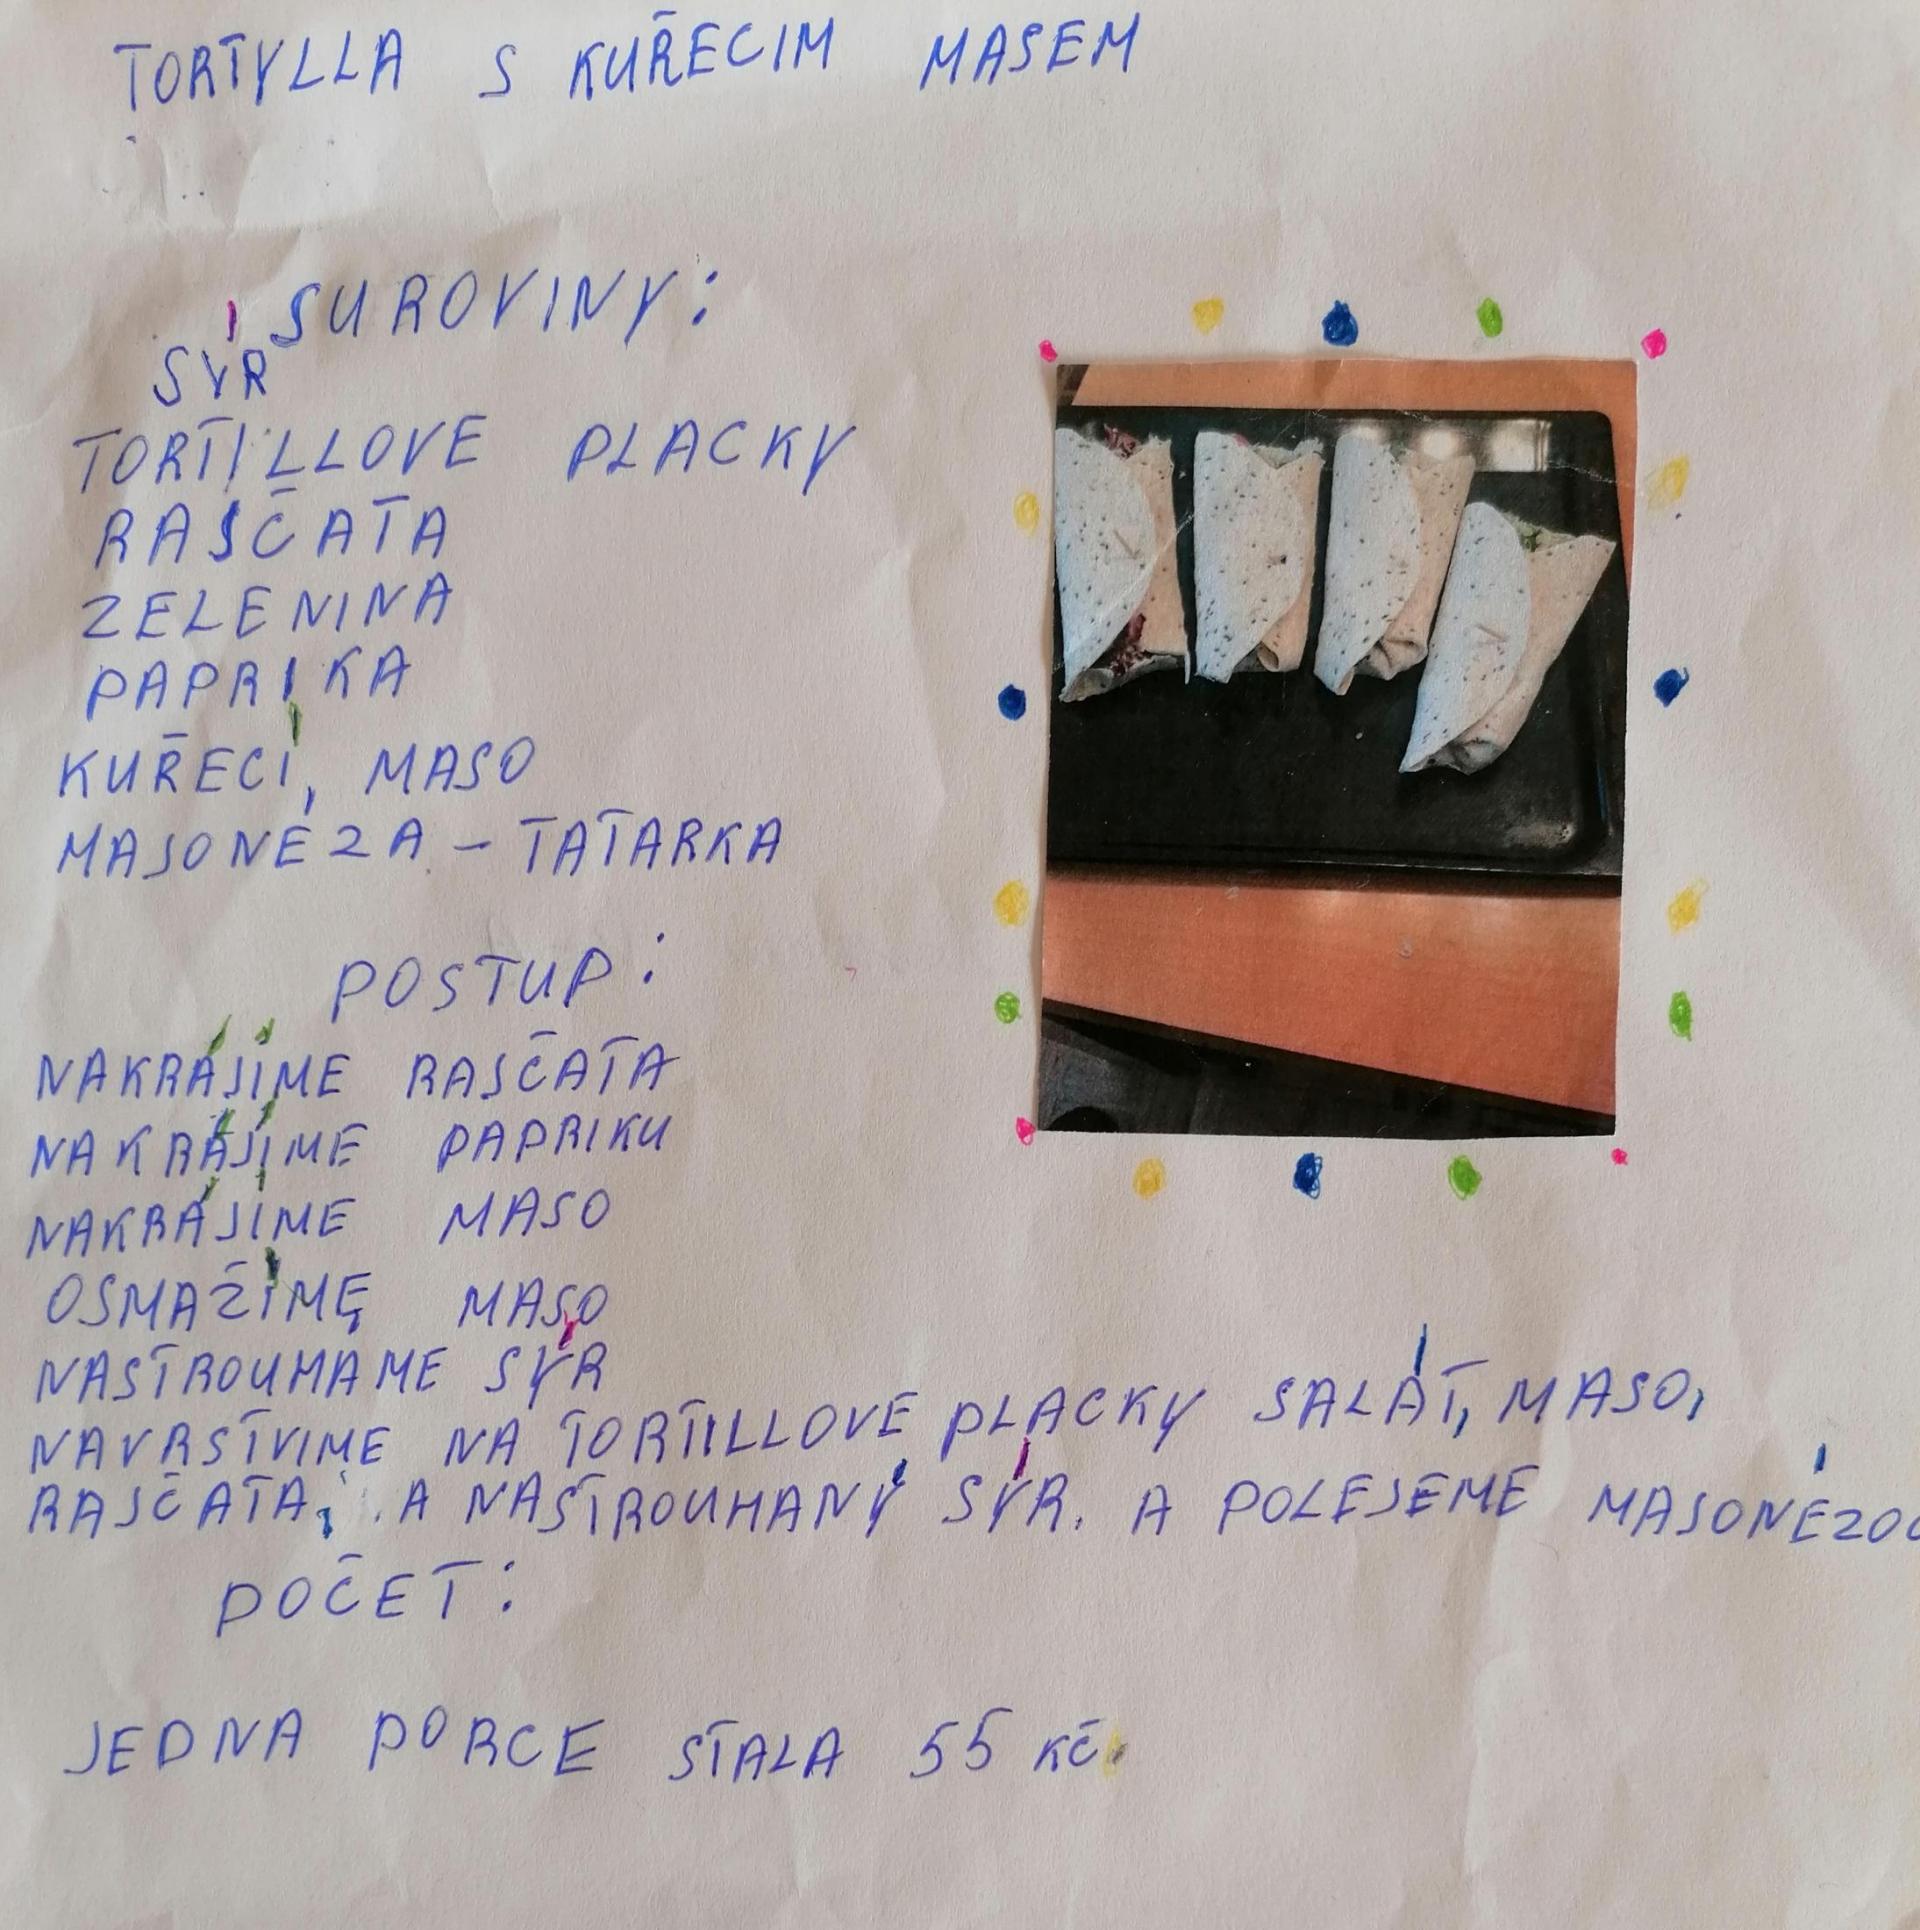 TORTYLLA S KUŘECIM MASEM
SUROVINY:
SÝR
TORTILLOVE PLACKY
RAJČATA
ZELENINA
PAPRIKA
KUŘECÍ, MASO
MAJONÉZA - TATARKA
POSTUP:
NAKRÁJÍME RAJČATA
NAKRÁJÍME PAPRIKU
NAKRÁJÍME MASO
OSMAŽÍME MASO
NASTROUHAME SÝR
NAVRSTVIME NA TORTILLOVE PLACKY SALÁT, MASO,
RAJČATA, A NASTROUHANÝ SÝR. A POLEJEME MAJONÉZOU
POČET:
JEDNA PORCE STALA 55 KČ.